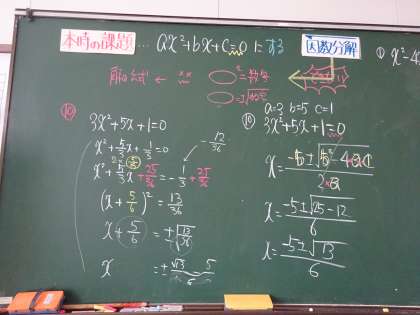 本時の課題 … ax²+bx+c=0 にする 因数分解
解の公式 ← ○²=数字
○=±√数字
⑩
3x²+5x+1=0
x²+5/3x+1/3=0
x²+5/3x+25/36=-1/3+25/36
-12/36
(x+5/6)²=13/36
x+5/6=±√13/36
x =±√13-5/6
a=3 b=5 c=1
⑩ 3x²+5x+1=0
x=-5±√5²-4・3・1/2×3
x=-5±√25-12/6
x=-5±√13/6
① x²-4